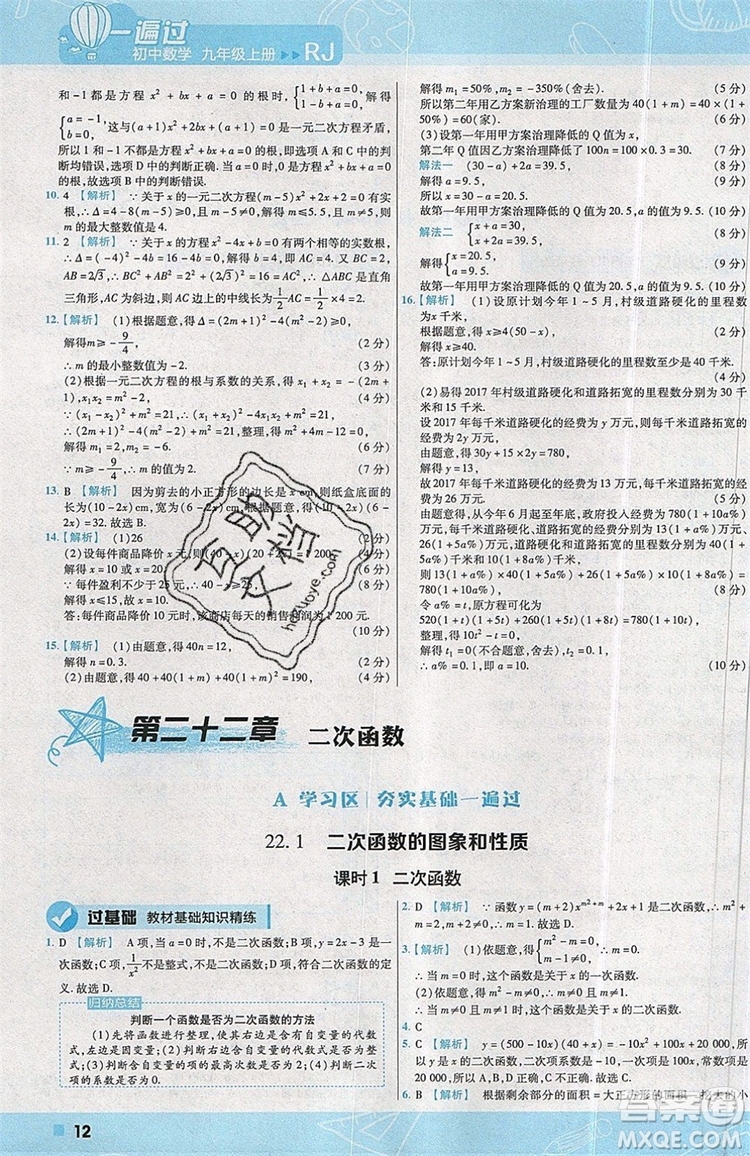 一遍过
初中数学 九年级上册 ▶▶ RJ
和 -1 都是方程 x² + bx + a = 0 的根时, 解得 {1+b+a=0, 1-b+a=0,
{a=-1, b=0, 这与(a+1)x²+(a+1)=0是一元二次方程矛盾,
所以 1 和 -1 不都是方程 x²+bx+a=0 的根, 即选项 A 和 C 中的判
断均错误, 选项 D 中的判断正确. 当 a=0 时, 选项 B 中的判断错
误. 故选项 B 中的判断错误.
10. 4 【解析】 ∵ 关于 x 的一元二次方程(m-5)x²+2x+2=0 有实
根, ∴ Δ=4-8(m-5)≥0, 且 m-5≠0, 解得 m≤5.5, 且 m≠5, 则
m 的最大整数值是 4.
11. 2 【解析】 ∵ 关于 x 的方程 x²-4x+b=0 有两个相等的实数根,
∴ Δ=(-4)²-4b=16-4b=0, 解得 b=4, ∴ AC=b=4. 又 BC=2,
AB=2√3, ∴ BC²+AB²=2²+(2√3)²=16=AC², ∴ △ABC 是直角
三角形, AC 为斜边, 则 AC 边上的中线长为½AC=2.
12. 【解析】 (1)根据题意, 得 Δ=(2m+1)²-4(m²-2)≥0,
解得m≥-9/4, (2 分)
∴ m 的最小整数值为-2. (3 分)
(2)根据一元二次方程的根与系数的关系, 得 x₁+x₂=-(2m+
1), x₁x₂=m²-2, (4 分)
∵ (x₁-x₂)²+m²=21, ∴ (x₁+x₂)²-4x₁x₂+m²=21,
∴ (2m+1)²-4(m²-2)+m²=21, 整理, 得 m²+4m-12=0,
解得 m₁=2, m₂=-6. (6 分)
∵ m≥-9/4, ∴ m 的值为 2. (7 分)
13. B 【解析】 因为剪去的小正方形的边长是 x cm, 则纸盒底面的
长为(10-2x)cm, 宽为(6-2x)cm, 根据题意, 得(10-2x)(6-
2x)=32. 故选 B.
14. 【解析】 (1)26 (2 分)
(2)设每件商品降价 x 元, 则(40-x)(20+2x)=1 200, (5 分)
解得 x=10 或 x=20. (8 分)
∵ 每件盈利不少于 25 元, ∴ 40-x≥25,
解得 x≤15, ∴ x=10.
答: 每件商品降价 10 元时, 该商店每天的销售利润为 1 200 元.
(10 分)
15. 【解析】 (1)由题意, 得 40n=12, (1 分)
解得 n=0.3. (2 分)
(2)由题意, 得 40+40(1+m)+40(1+m)²=190, (4 分)
解得 m₁=50%, m₂=-350%(舍去). (5 分)
所以第二年用乙方案新治理的工厂数量为 40(1+m)=40×(1+
50%)=60(家). (6 分)
(3)设第一年用甲方案治理降低的 Q 值为 x,
第二年 Q 值因乙方案治理降低了 100n=100×0.3=30, (7 分)
解法一 (30-a)+2a=39.5, (8 分)
解得 a=9.5. (9 分)
故第一年用甲方案治理降低的 Q 值为 20.5, a 的值为 9.5.
解法二 {x+a=30, x+2a=39.5, (8 分)
解得{x=20.5, a=9.5. (9 分)
故第一年用甲方案治理降低的 Q 值为 20.5, a 的值为 9.5.
16. 【解析】 (1)设原计划今年 1~5 月, 村级道路硬化的里程数
为 x 千米,
根据题意, 得 x≥4(50-x), (2 分)
解得 x≥40.
答: 原计划今年 1~5 月, 村级道路硬化的里程数至少是 40 千米.
(4 分)
(2)易得 2017 年村级道路硬化和道路拓宽的里程数分别为 30 千
米和 15 千米.
设 2017 年每千米道路硬化的经费为 y 万元, 则每千米道路拓宽
的经费为 2y 万元,
由题意, 得 30y+15×2y=780, (6 分)
解得 y=13.
2017 年每千米道路硬化和道路拓宽的经费分别为 13 万元、26
万元. (7 分)
由题意, 得今年 6 月起至年底, 政府投入经费为 780(1+10a%)
万元, 每千米道路硬化、道路拓宽的经费分别为 13(1+a%)万
元、26(1+5a%)万元, 道路硬化、道路拓宽的里程数分别为40(1+
5a%)千米、10(1+8a%)千米,
则 13(1+a%)×40(1+5a%)+26(1+5a%)×10(1+8a%)=
780(1+10a%), (8 分)
令 a%=t, 原方程可化为
520(1+t)(1+5t)+260(1+5t)(1+8t)=780(1+10t),
整理, 得 10t²-t=0, 解得 t₁=0(舍去), t₂=0.1,
∴ a%=0.1, ∴ a=10. (10 分)
第二十二章 二次函数
A 学习区 | 夯实基础一遍过
22.1 二次函数的图象和性质
课时1 二次函数
过基础 教材基础知识精练
1. D 【解析】 A 项, 当 a=0 时, 不是二次函数; B 项, y=2x-3 是一
次函数; C 项, 1/x² 不是整式, 不是二次函数; D 项符合二次函数的定
义. 故选 D.
归纳总结
判断一个函数是否为二次函数的方法
(1)先将函数进行整理, 使其右边是含有自变量的代数
式, 左边是因变量; (2)判断右边含自变量的代数式是否为
整式; (3)判断自变量的最高次数是否是 2; (4)判断二次
项的系数是否为 0.
2. D 【解析】 ∵ 函数 y=(m²+m)x^(m²+m)+2x 是二次函数, ∴ m²+
m=2, 且 m²+m≠0, 解得 m=-2 或 m=1. 故选 D.
3. 【解析】 (1)依题意, 得{m²-m=0, m-1≠0, 解得 m=0.
∴ 当 m=0 时, 这个函数是关于 x 的一次函数.
(2)依题意, 得 m²-m≠0, ∴ m≠0 且 m≠1.
∴ 当 m≠0 且 m≠1 时, 这个函数是关于 x 的二次函数.
4. C
5. C 【解析】 y=(500-10x)(40+x)=-10x²+100x+
20 000, 这个二次函数的二次项系数为-10, 一次项系数为 100, 常数项为
20 000, 故选 C.
6. B 【解析】 根据剩余部分的面积=大正方形的面积-挖去的小
12
互助文档
hezuoye.com
答案圈
MXQE.COM